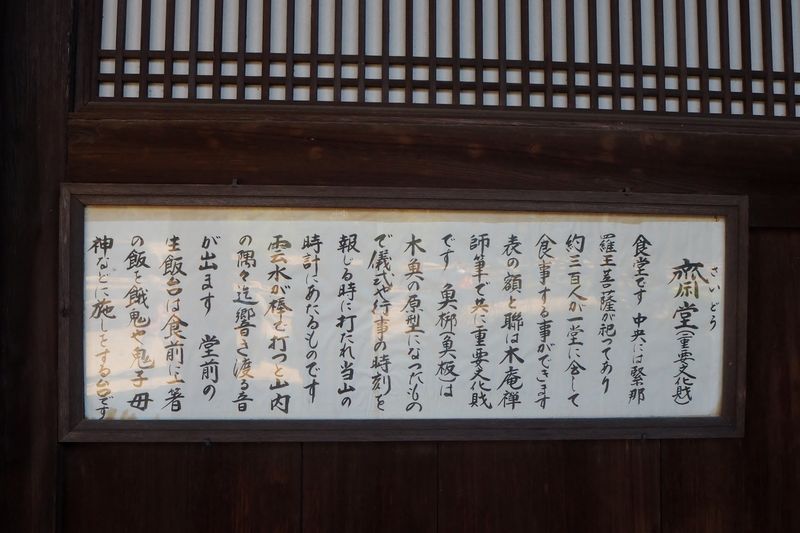 さいどう
齋堂(重要文化財)
食堂です 中央には緊那
羅王菩薩が祀つてあり
約三百人が一堂に会して
食事する事ができます
表の額と聯は木庵禅
師筆で共に重要文化財
です 魚梆(魚板)は
木魚の原型になつたもの
で儀式や行事の時刻を
報じる時に打たれ当山の
時計にあたるものです
雲水が棒で打つと山内
の隅々迄響き渡る音
が出ます 堂前の
生飯台は食前に一箸
の飯を餓鬼や鬼子母
神などに施しをする台です